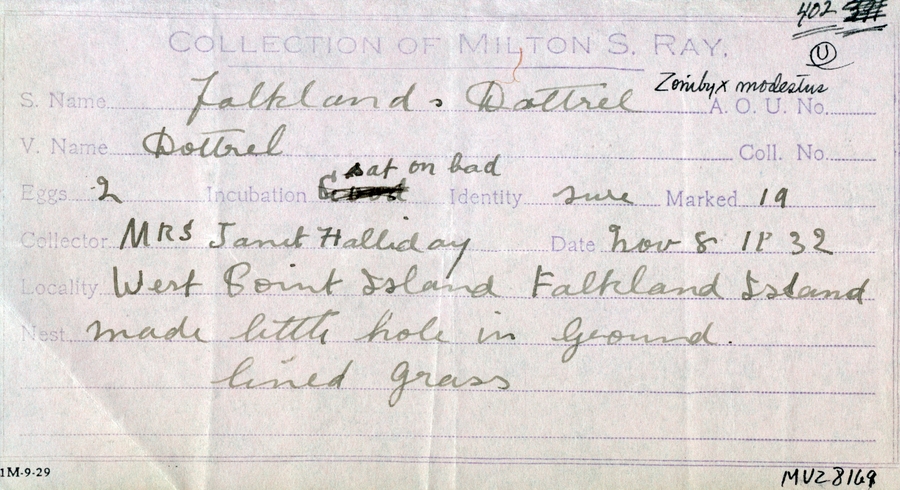 402
U
COLLECTION OF MILTON S. RAY.
Zonibyx modestus
S. Name Falklands Dottrel A. O. U. No.
V. Name Dottrel Coll. No.
sat on bad
Eggs 2 Incubation Identity sure Marked 19
Collector MRS Janet Halliday Date Nov 8 1932
Locality West Point Island Falkland Island
Nest made little hole in Ground.
lined Grass
1M-9-29
MVZ 8169